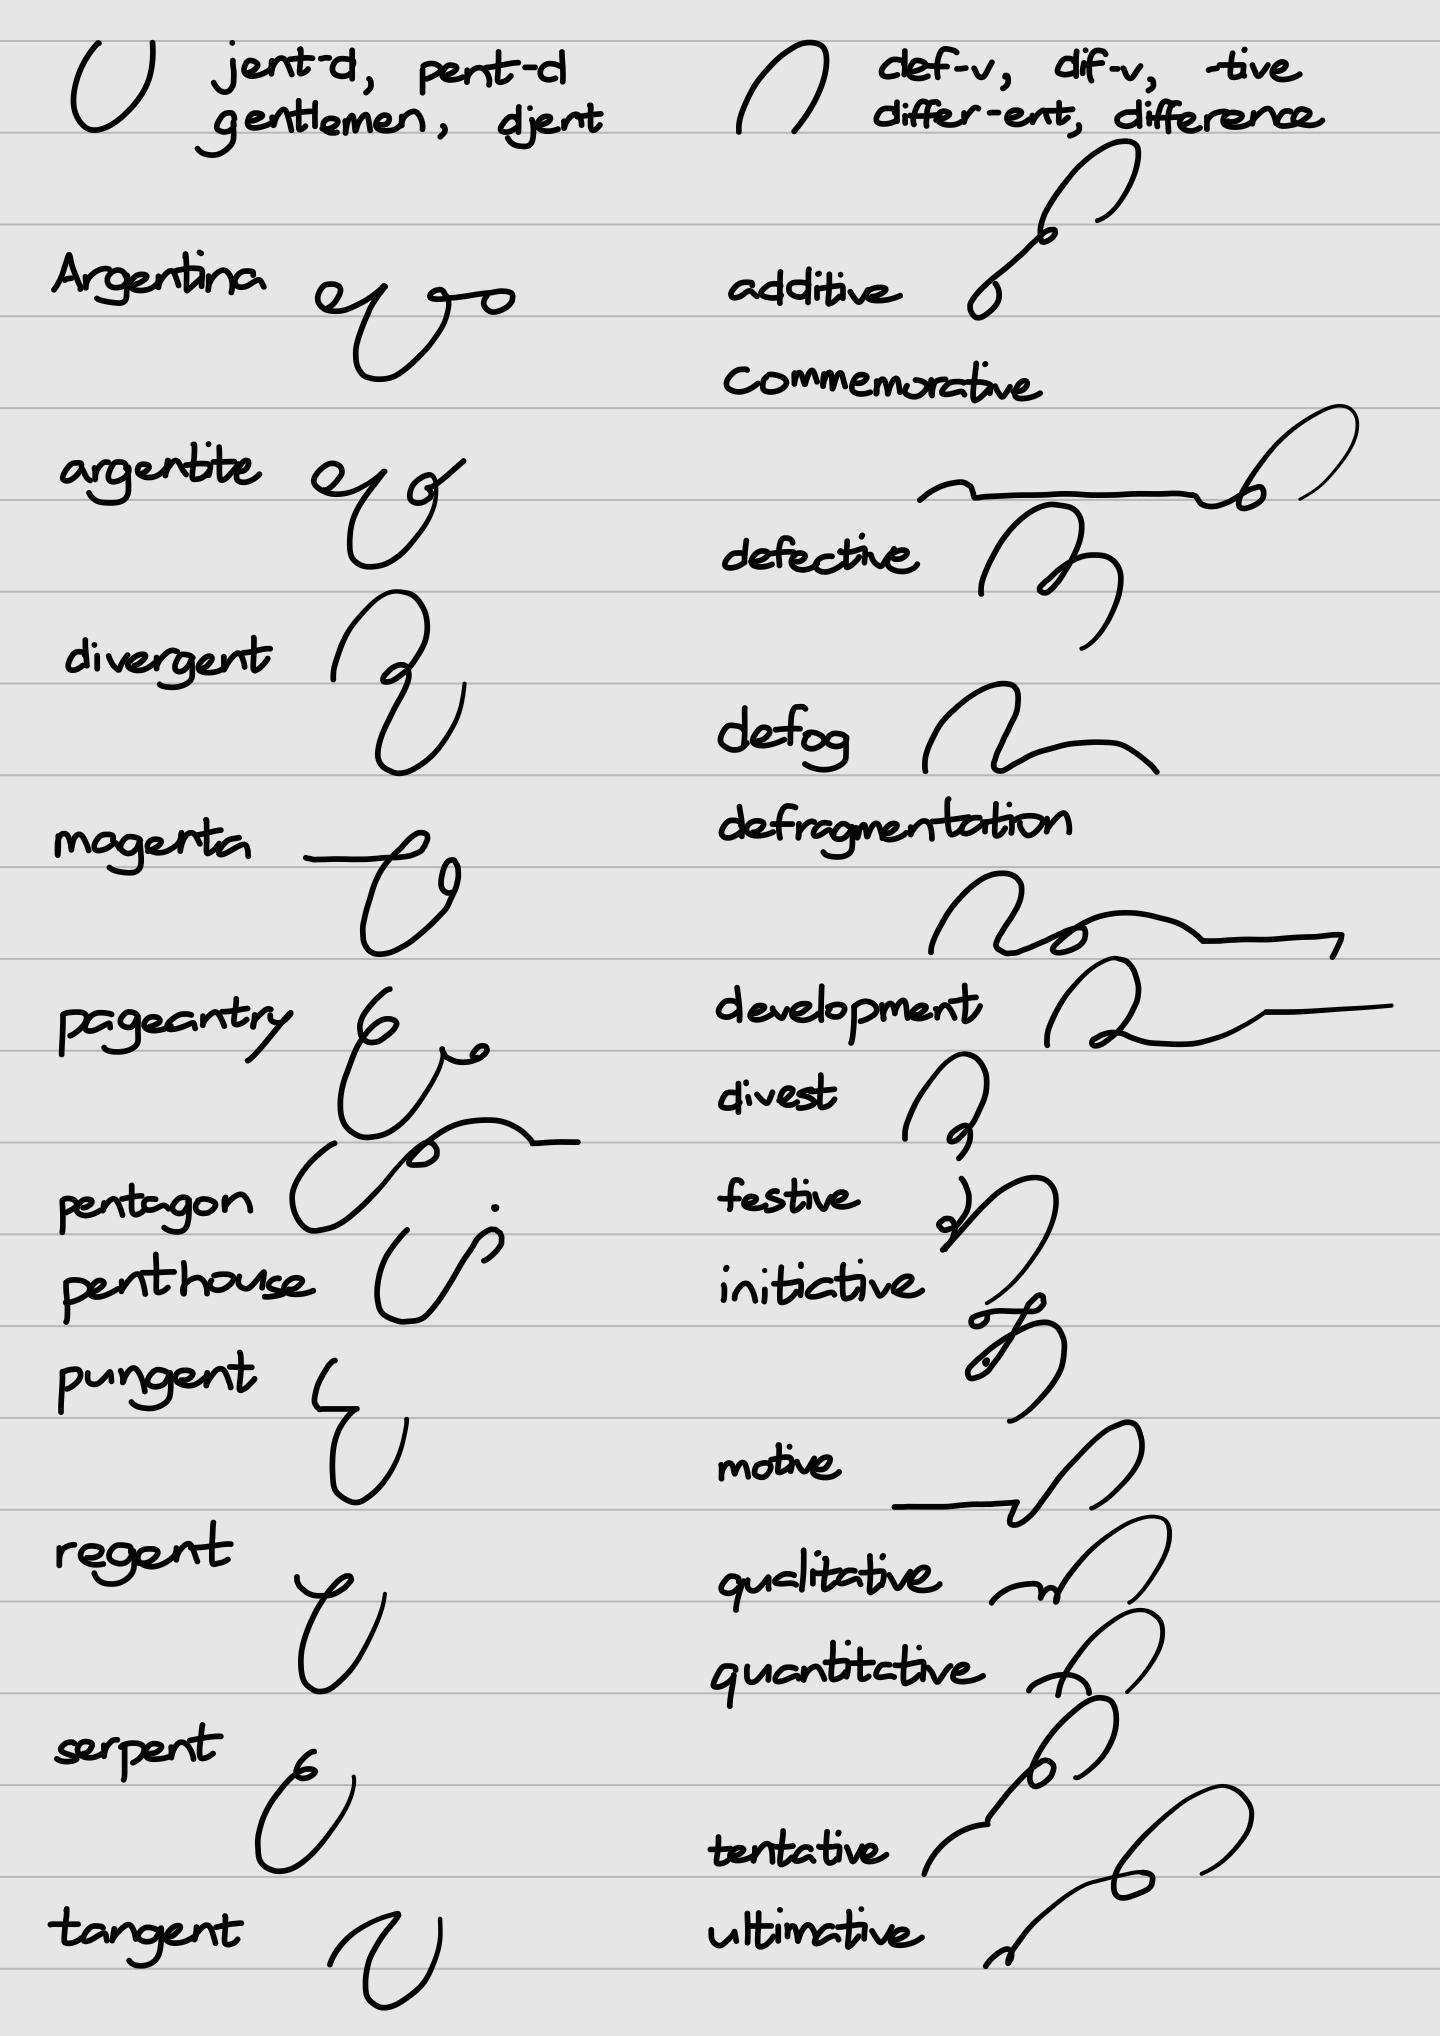 jent-d, pent-d
gentlemen, djent
Argentina
argentite
divergent
magenta
pageantry
pentagon
penthouse
pungent
regent
serpent
tangent
def-v, dif-v, -tive
differ-ent, difference
additive
commemorative
defective
defog
defragmentation
development
divest
festive
initiative
motive
qualitative
quantitative
tentative
ultimative